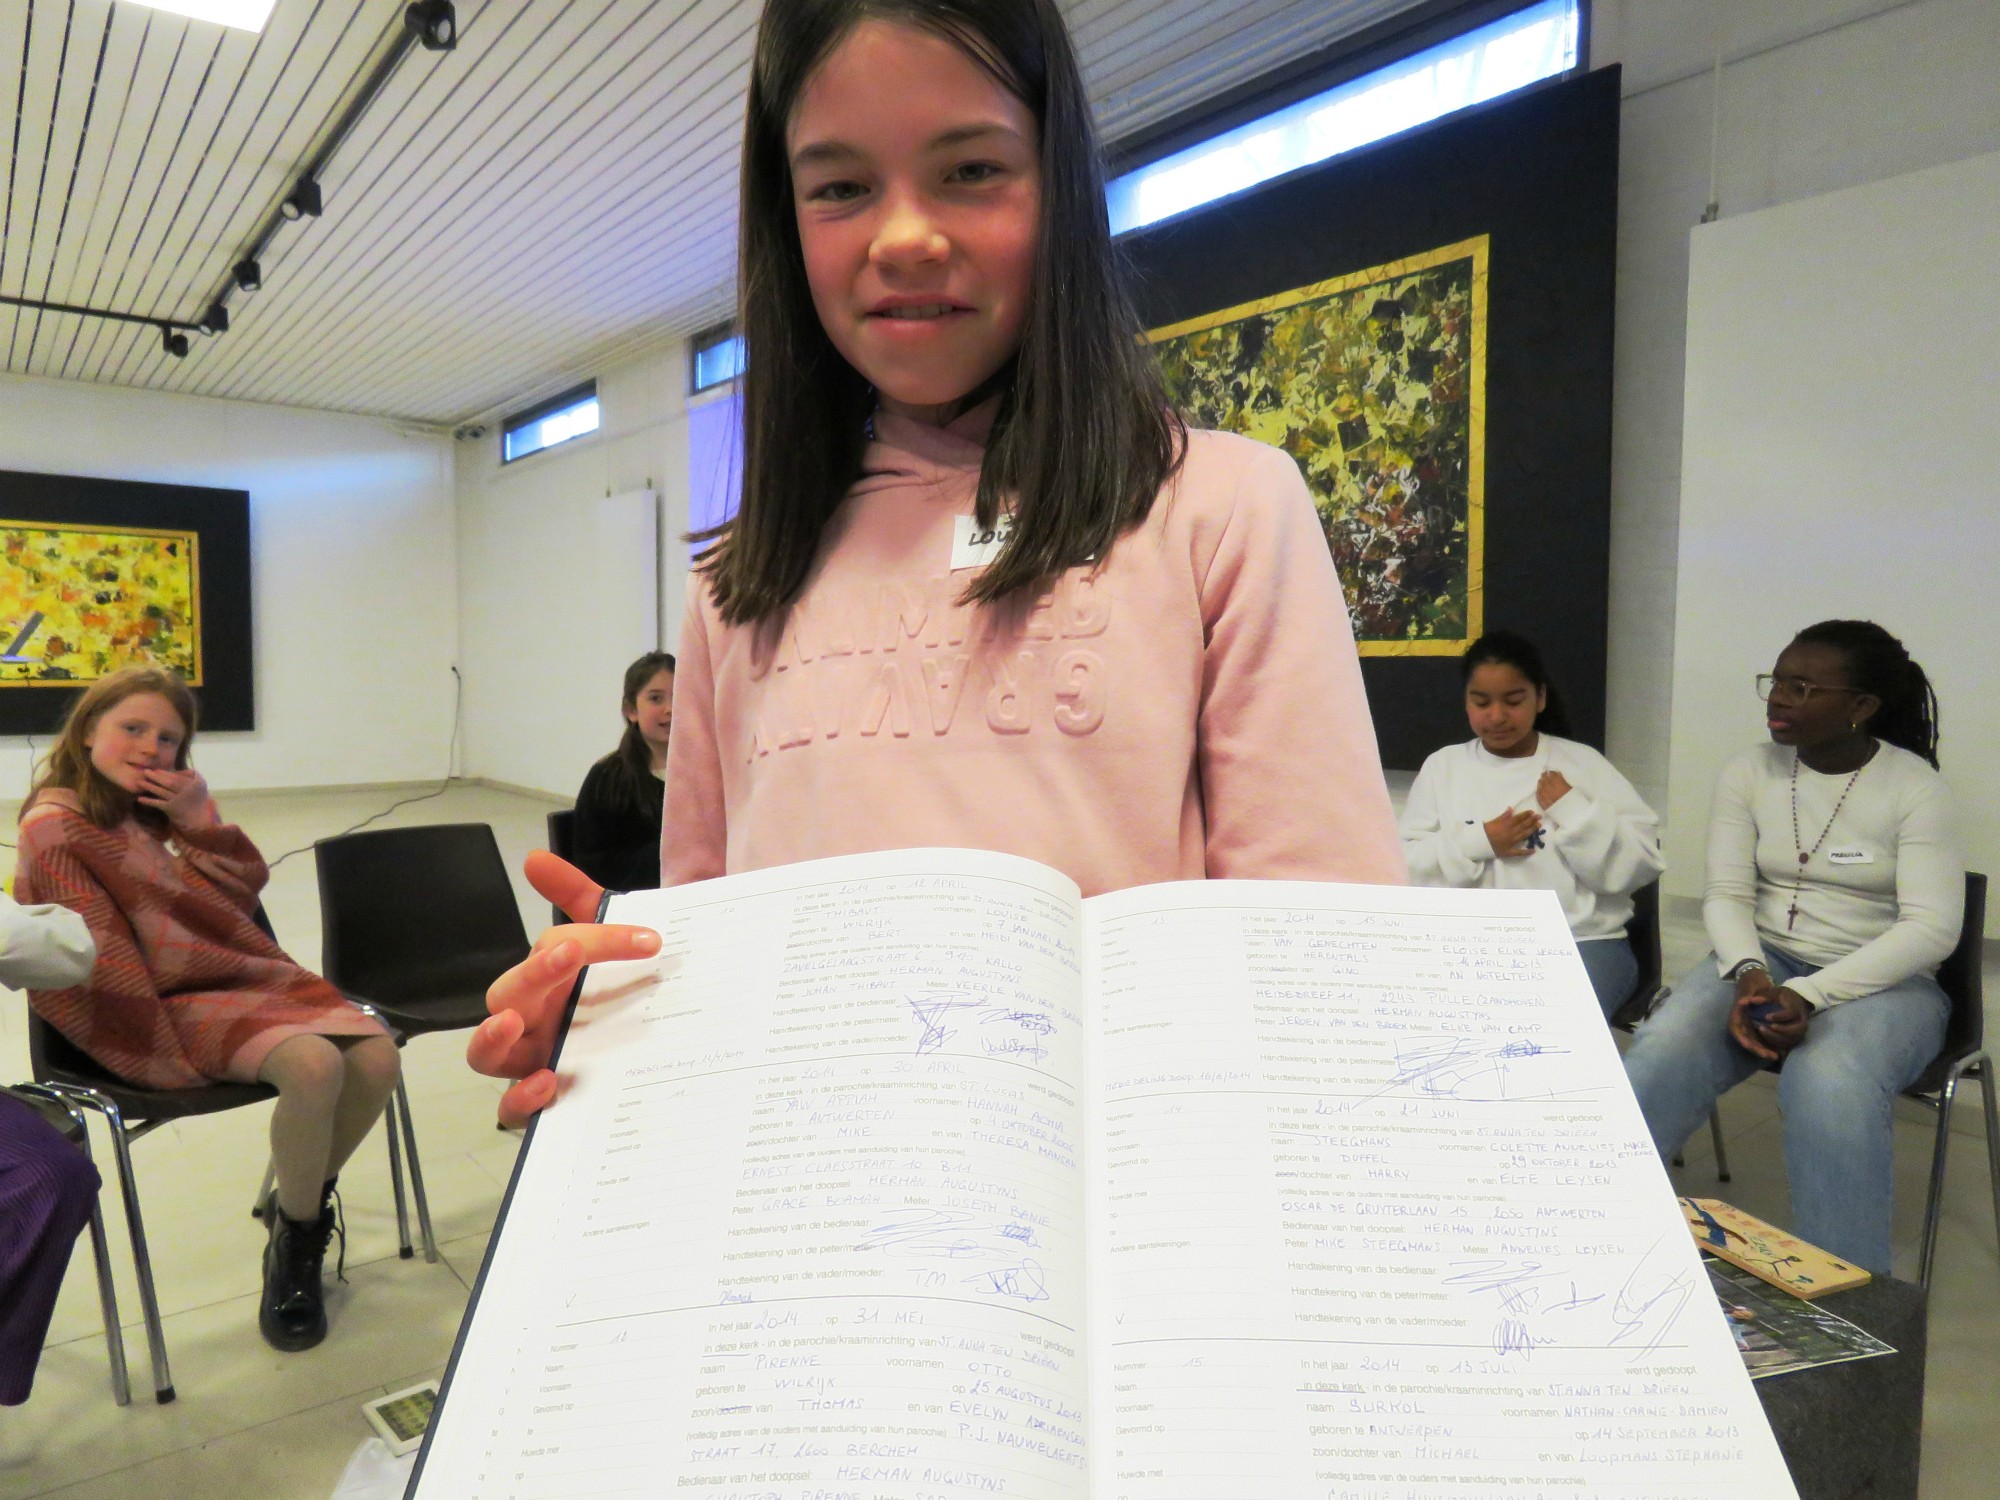 LOU
PRESILIA
Nummer 10 In het jaar 2014 op 12 APRIL
Naam: in deze kerk - in de parochie/kraaminrichting van ST. ANNA TEN DRIEËN werd gedoopt
Voornaam naam THIBAUT voornamen LOUISE
Gevormd op geboren te WILRIJK op 7 JANUARI
zoon/dochter van BERT en van HEIDI VAN DEN
(volledig adres van de ouders met aanduiding van hun parochie)
ZAVELGELAAGSTRAAT 6, KALLO
Bedienaar van het doopsel: HERMAN AUGUSTYNS
Peter JOHAN THIBAUT Meter VEERLE VAN DEN
Andere aantekeningen Handtekening van de bedienaar:
Handtekening van de peter/meter:
Handtekening van de vader/moeder:
Nummer 11 In het jaar 2014 op 30 APRIL
Naam in deze kerk - in de parochie/kraaminrichting van ST. LUCAS werd gedoopt
Voornaam naam YAW APPIAH voornamen HANNAH
Gevormd op geboren te ANTWERPEN op 4 OKTOBER 2006
te zoon/dochter van MIKE en van THERESA MANSAH
Huwde met (volledig adres van de ouders met aanduiding van hun parochie)
op ERNEST CLAESSTRAAT 10 B11
te Bedienaar van het doopsel: HERMAN AUGUSTYNS
Peter GRACE BOAMAH Meter JOSEPH BANIE
Andere aantekeningen Handtekening van de bedienaar:
Handtekening van de peter/meter:
Handtekening van de vader/moeder: TM
V
Nummer 12 In het jaar 2014 op 31 MEI
Naam in deze kerk - in de parochie/kraaminrichting van ST. ANNA TEN DRIEËN werd gedoopt
Voornaam naam PIRENNE voornamen OTTO
Gevormd op geboren te WILRIJK op 25 AUGUSTUS 2013
te zoon/dochter van THOMAS en van EVELYN ADRIAENSEN
Huwde met (volledig adres van de ouders met aanduiding van hun parochie) P.J. NAUWELAERTS-
op STRAAT 17, 2600 BERCHEM
Bedienaar van het doopsel: HERMAN AUGUSTYNS
PIRENNE Meter
Nummer 13 In het jaar 2014 op 15 JUNI
Naam in deze kerk - in de parochie/kraaminrichting van ST. ANNA TEN DRIEËN
Voornaam naam VAN GENECHTEN voornamen ELOÏSE ELKE JEROEN
Gevormd op geboren te HERENTALS op APRIL 2013
te zoon/dochter van GINO en van AN NOTELTEIRS
Huwde met (volledig adres van de ouders met aanduiding van hun parochie)
op HEIDEDREEF 11, 2243 PULLE (ZANDHOVEN)
te Bedienaar van het doopsel: HERMAN AUGUSTYNS
Andere aantekeningen Peter JEROEN VAN DEN BROECK Meter ELKE VAN CAMP
Handtekening van de bedienaar:
Handtekening van de peter/meter:
MEDEDELING DOOP 16/6/2014 Handtekening van de vader/moeder:
Nummer 14 In het jaar 2014 op 21 JUNI werd gedoopt
Naam in deze kerk - in de parochie/kraaminrichting van ST. ANNA TEN DRIEËN
Voornaam naam STEEGMANS voornamen COLETTE ANNELIES MIKE
Gevormd op geboren te DUFFEL op 29 OKTOBER 2013
te zoon/dochter van HARRY en van ELTE LEYSEN
Huwde met (volledig adres van de ouders met aanduiding van hun parochie)
op OSCAR DE GRUYTERLAAN 15, 2050 ANTWERPEN
te Bedienaar van het doopsel: HERMAN AUGUSTYNS
Andere aantekeningen Peter MIKE STEEGMANS Meter ANNELIES LEYSEN
Handtekening van de bedienaar:
Handtekening van de peter/meter:
V Handtekening van de vader/moeder:
Nummer 15 In het jaar 2014 op 13 JULI werd gedoopt
Naam in deze kerk - in de parochie/kraaminrichting van ST. ANNA TEN DRIEËN
Voornaam naam SURKOL voornamen NATHAN-CARINE-DAMIEN
Gevormd op geboren te ANTWERPEN op 14 SEPTEMBER 2013
te zoon/dochter van MICHAEL en van LOOPMANS STEPHANIE
Huwde met (volledig adres van de ouders met aanduiding van hun parochie)
op CAMILLE